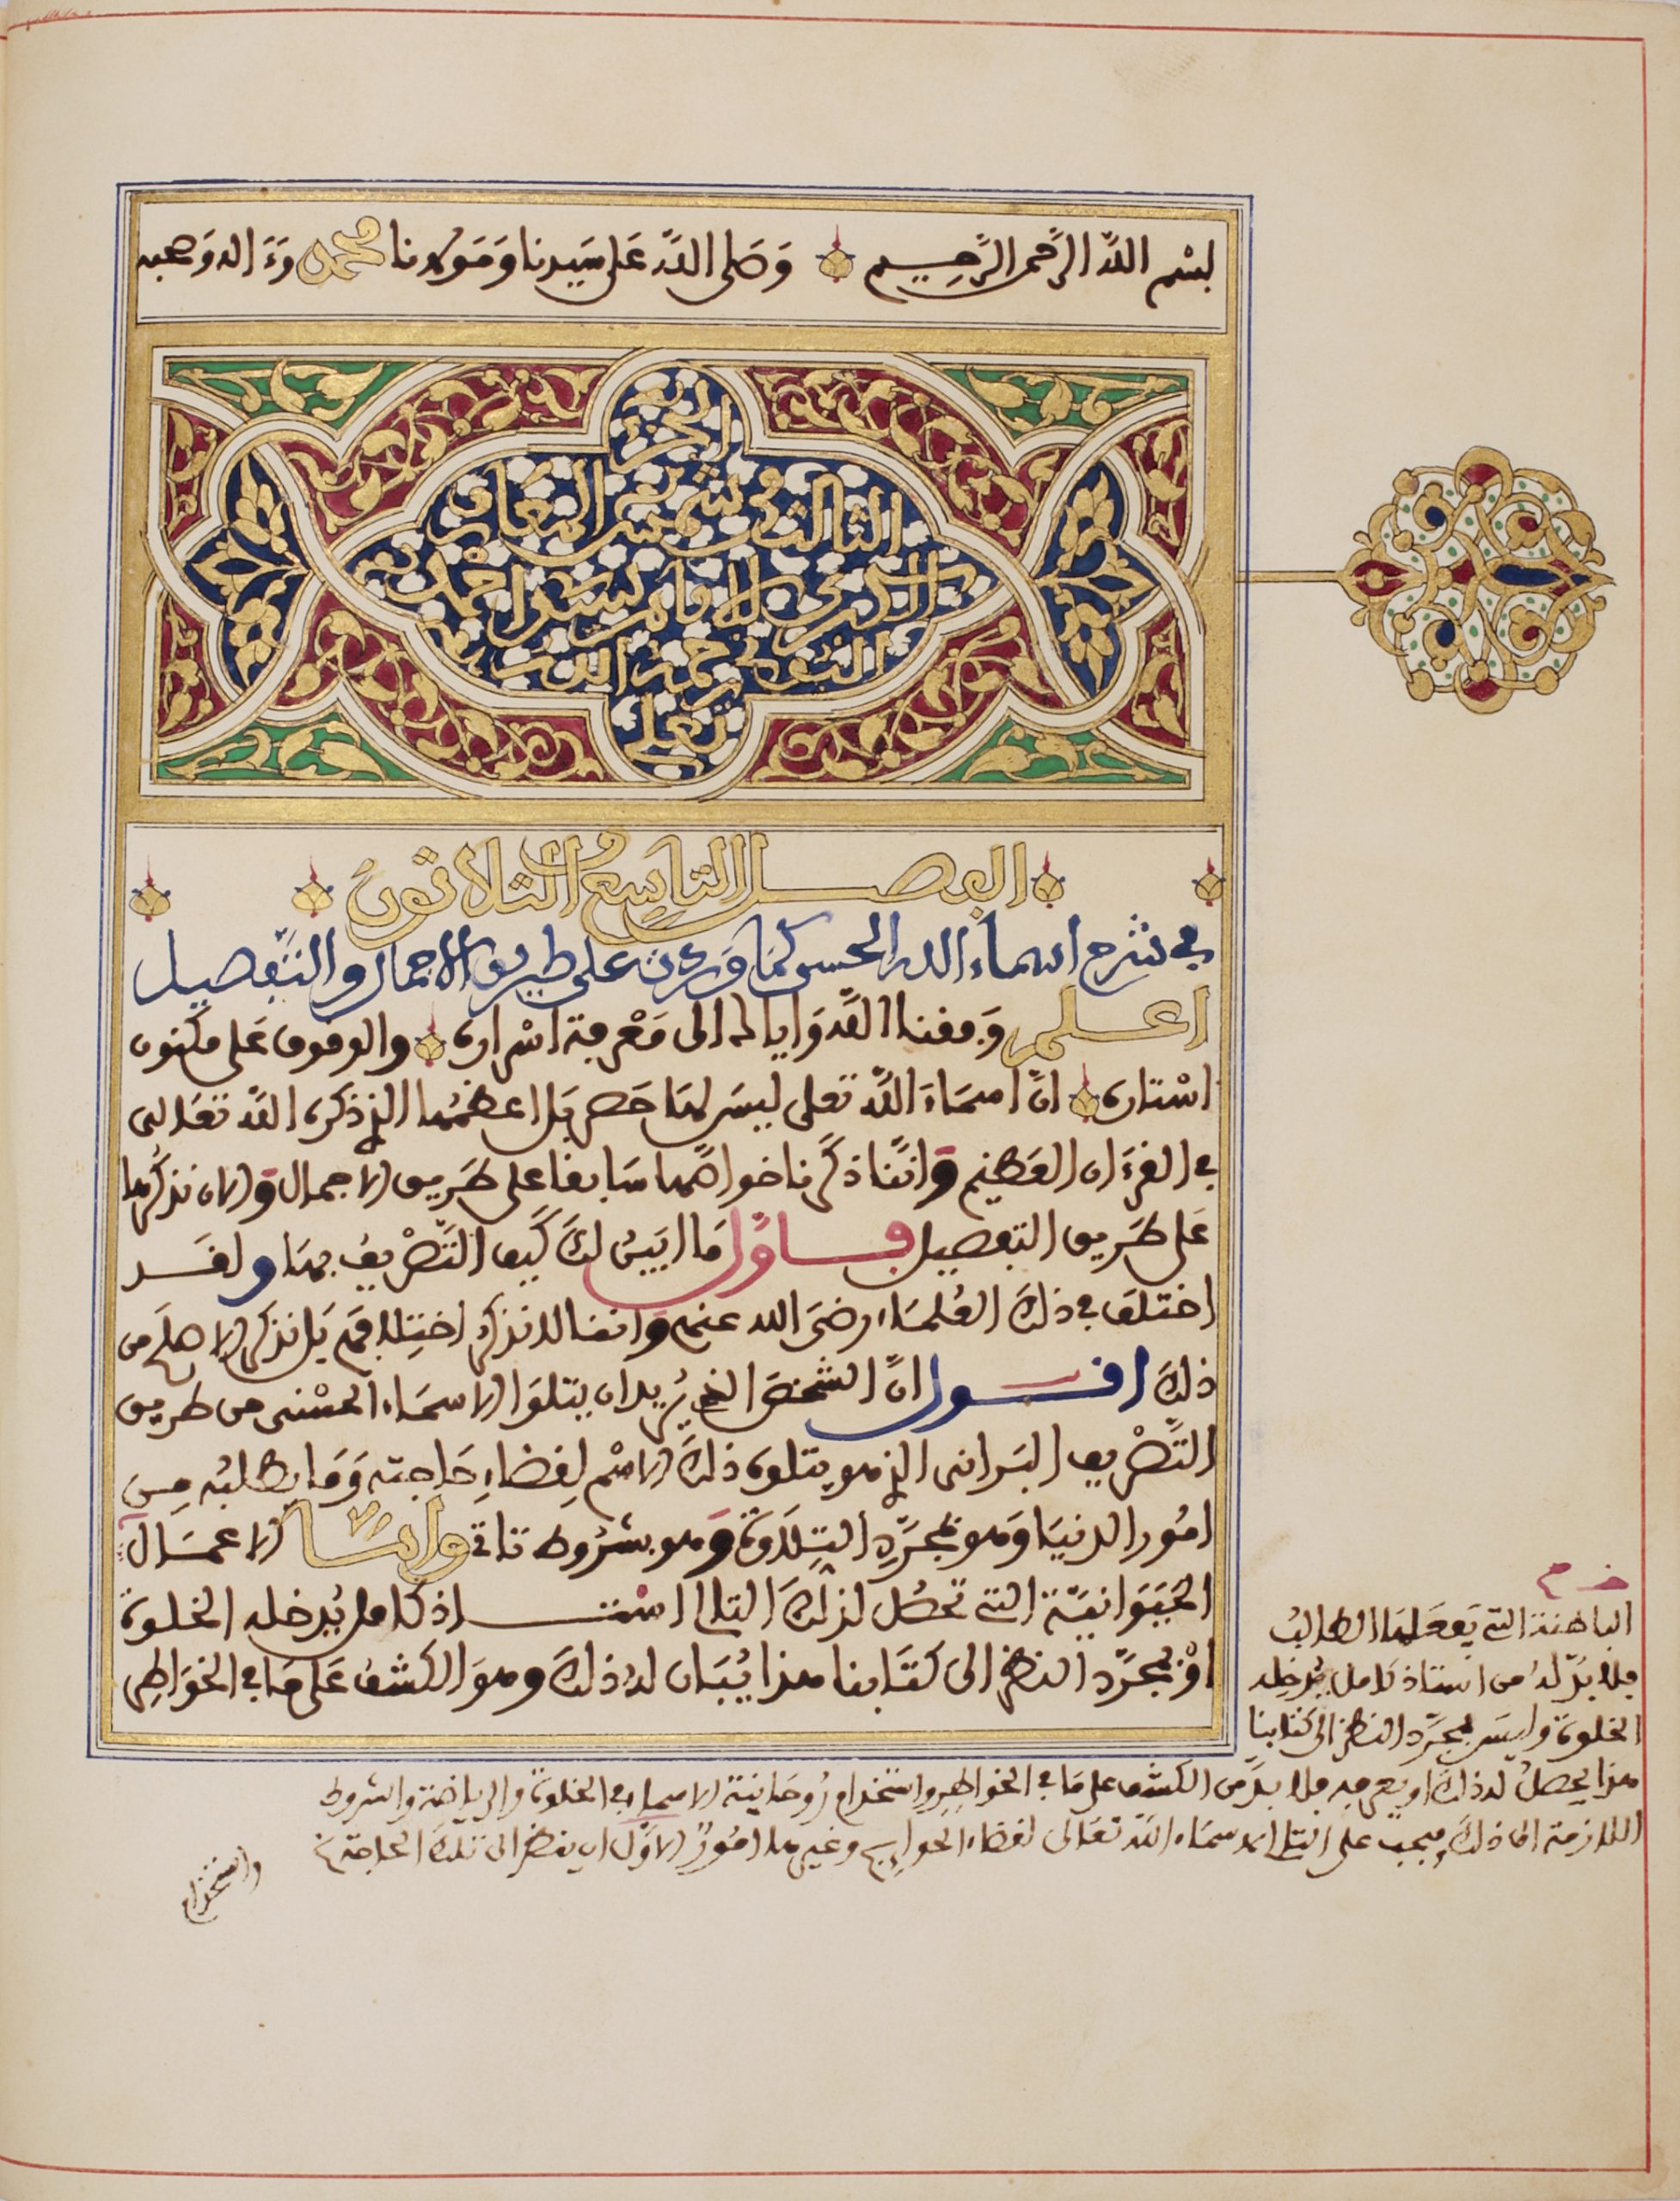 بسم الله الرحمن الرحيم وصلى الله على سيدنا ومولانا محمد وءاله وصحبه
الجزء
الثالث من شمس المعارف
الكبرى للامام سيدى احمد
البونى رحمه الله
تعلى
الفصل التاسع والثلاثون
في شرح اسماء الله الحسنى كما وردت على طريق الاجمال والتفصيل
اعلم وفقنا الله واياك الى معرفة اسراره والوقوف على مكنون
استاره ان اسماء الله تعلى ليس لها حصر بل اعظمها الذي ذكره الله تعالى
في القرءان العظيم واننا ذكرنا خواصها سابقا على طريق الاجمال والان نذكرها
على طريق التفصيل فاول ما ابين لك كيف التصريف بها ولقد
اختلف في ذلك العلماء رضي الله عنهم واننا لا نذكر اختلافهم بل نذكر الاصلح من
ذلك اقول ان الشخص الذي يريد ان يتلوا الاسماء الحسنى من طريق
التصريف البرانى الذي هو يتلوه ذلك الاسم لقضاء حاجته وما يطلبه من
امور الدنيا وهو بمجرد التلاوة وهو بشروط تاتي واما الاعمال
الجوانية التي تحصل لذلك التالي استاذ كامل يدخله الخلوة
او بمجرد النظر الى كتابنا هذا يبان له ذلك وهو الكشف على ما في الخواطر
الباطنة التي يفعلها الطالب
فلا بد له من استاذ كامل يدخله
الخلوة وليس بمجرد النظر الى كتابنا
هذا يحصل له ذلك او يعرفه فلا بد من الكشف على ما في الخواطر واستخدام روحانية الاسماء في الخلوة والرياضة والشروط
اللازمة الى ذلك ويجب على التالي لاسماء الله تعالى لقضاء الحوايج وغيرها امور الاول ان ينظر الى تلك الحاجة
واستخدام